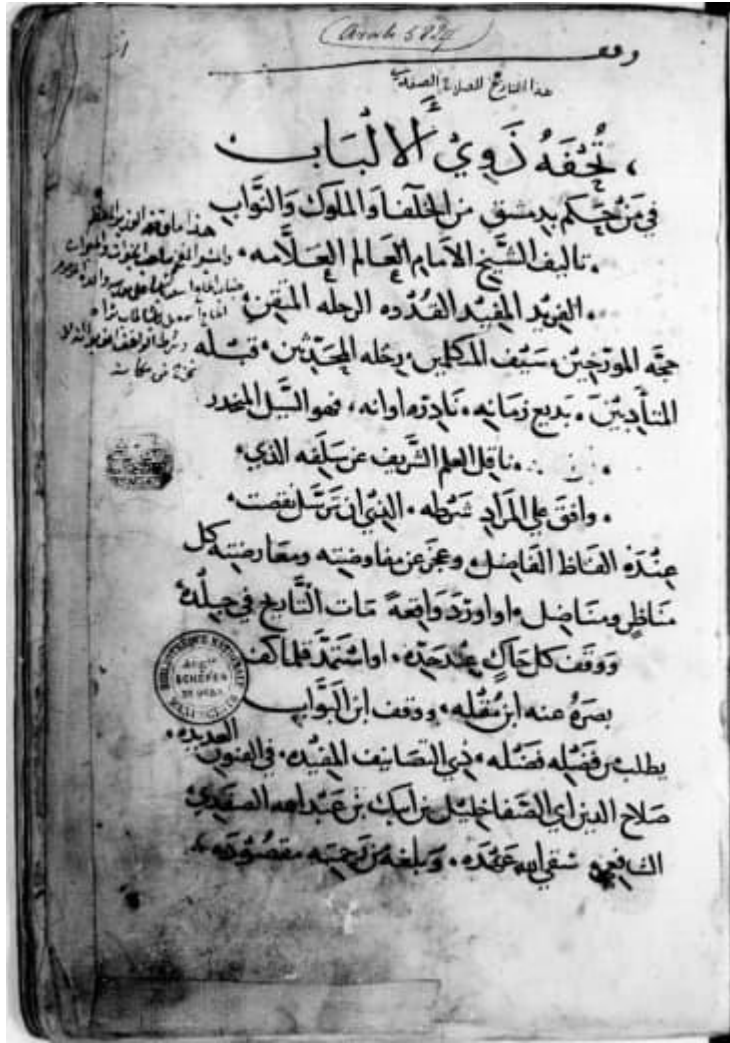 Arab 5827
وقف
هذا التاريخ للصلاح الصفدي
تُحْفَةُ ذَوِيْ الالْبَابِ
في مَنْ حَكم بدمشق من الخلفا وَالملوك وَالنَّواب
تاليف الشَّيخ الامام العَالم العَلَّامه
الفريد المفيد القُدوه الرحله المتقن
حجَّه المورّخين سَيْف المتكلمين رحْله المحَدّثين قبْله
المتأدبيْنَ بَديع زمَانه نَادرَة اوانه فهو السَّيل المنحدر
ناقل العلم الشَّريف عن سَلَفِه الذي
وَافق علي المرَادِ شَرْطه الذي ان تَرسَّل نقصت
عِنْدَهُ الفَاظ الفَاضل وعجزَ عن مفاوضته ومعَارضته كل
مناظرٍ ومنَاضِل او اورَدَ وَاقعةً مَات التَّاريخ في جلْده
وَوقف كل حَاكٍ عِندحَدّه او اسْتَمدَّ قلما كف
بصَرهُ عنه ابن مُقْله ووقف ابن البَوَّاب
يطلب من فَضْله فَضْله ذي التصَانيف المفيْده في الفنون العَديده
صَلاح الدين ابي الصَّفَا خليْل بن ايبك بن عَبْد الله الصَفَدي
الشافعي سَقي الله عَهْدَه وَبلغه من رَحمته مقصُودَه
هذا ما وقفه الوزير المعظم
BIBLIOTHÈQUE NATIONALE
SCHEFER
MANUSCRITS